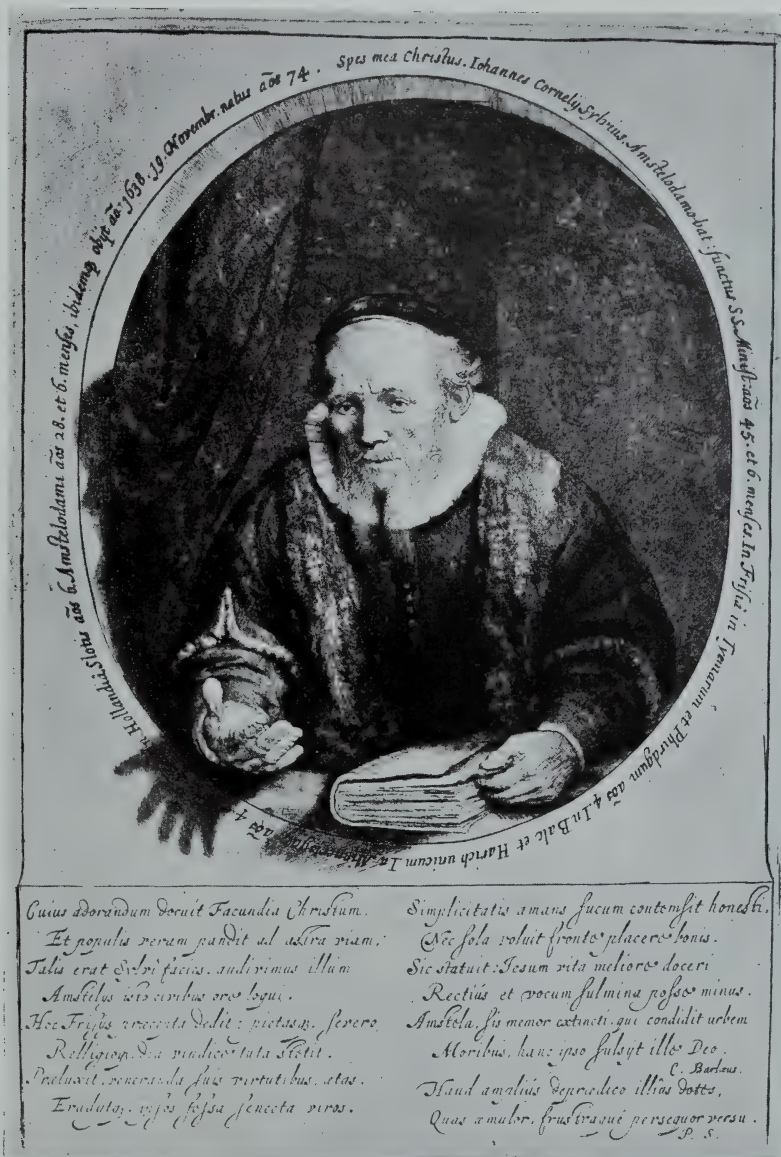 Spes mea Christus. Iohannes Cornelij Sylvius, Amstelodamobat: functus S.S. Minist: aōs 45. et 6. menses. In Frisia in Tyemarum et Phirdgum aōs 4. In Balc et Harich unicum In aōs 4 In Hollandiæ Slotis aōs 6. Amstelodami aōs 28. et 6. menses, ibidemq obijt aō. 1638. 19. Novembr. natus aōs 74.
Cuius adorandum docuit Facundia Christum.
Et populis veram pandit ad astra viam,
Talis erat Sylvi facies. audivimus illum
Amstelijs isto civibus ore loqui.
Hoc Frisijs præcepta dedit: pietasq. severo
Relligioq. diu vindice tuta stetit.
Præluxit, veneranda suis virtutibus, ætas.
Erudijtq. ipsos fessa senecta viros.
Simplicitatis amans fucum contemsit honesti,
Nec sola voluit fronte placere bonis.
Sic statuit: Iesum vita meliore doceri
Rectiùs et vocum fulmina posse minus.
Amstela, sis memor extincti. qui condidit urbem
Moribus, hanc ipso fulsijt ille Deo.
C. Barlæus.
Haud ampliùs deprædico illius dotes,
Quas æmulor, frustraque persequor versu.
P. S.